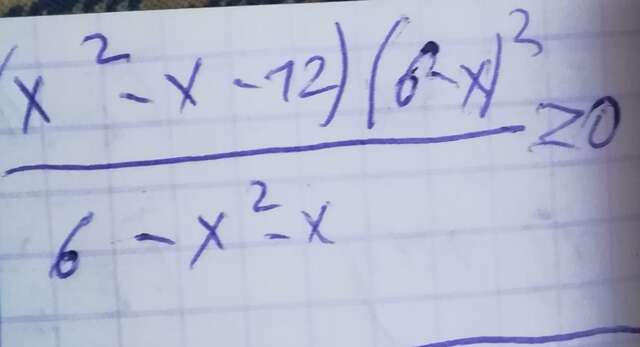 (x² - x - 12)(6 - x)³
≥0
6 - x² - x